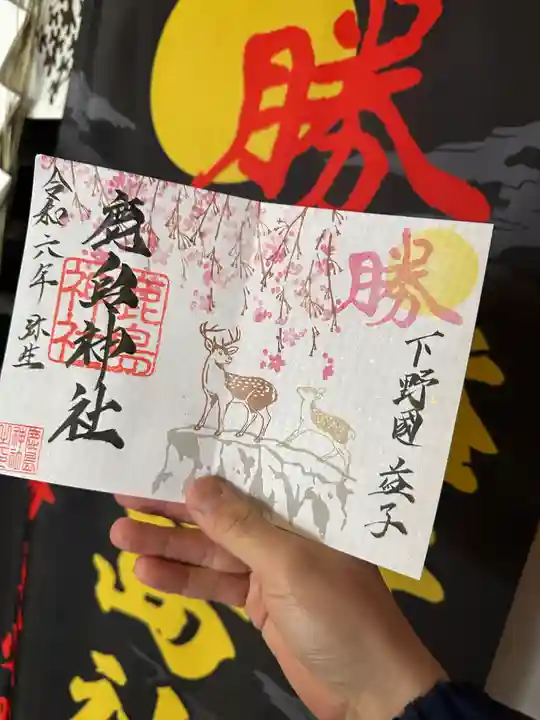 勝
勝
下野國 益子
鹿島神社
鹿島神社
令和六年 弥生
鹿島神社之印